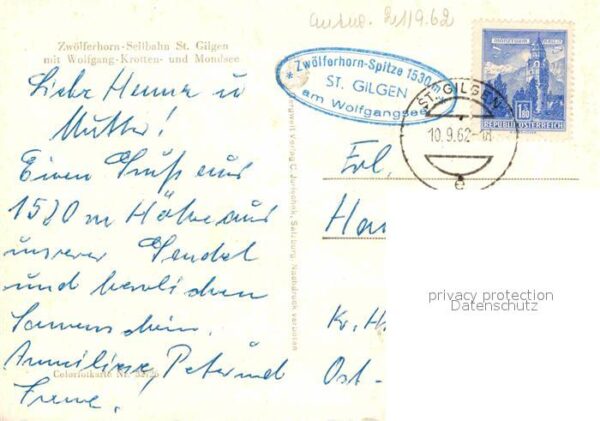 answ. 21/9.62
Zwölferhorn-Seilbahn St. Gilgen
mit Wolfgang-Krotten- und Mondsee
* Zwölferhorn-Spitze 1530 m *
ST. GILGEN
am Wolfgangsee
ST. GILGEN
10.9.62-
e
1.80
REPUBLIK ÖSTERREICH
Liebe u
Mutter!
Einen Gruß aus
1520 m Höhe aus
unserer
und herrlichen
Sonnenschein.
Peter und
Colorfotokarte Nr.
Verlag C. Jurischek, Salzburg, Nachdruck verboten
Frl,
Han
Kr. H
Ost -
privacy protection
Datenschutz